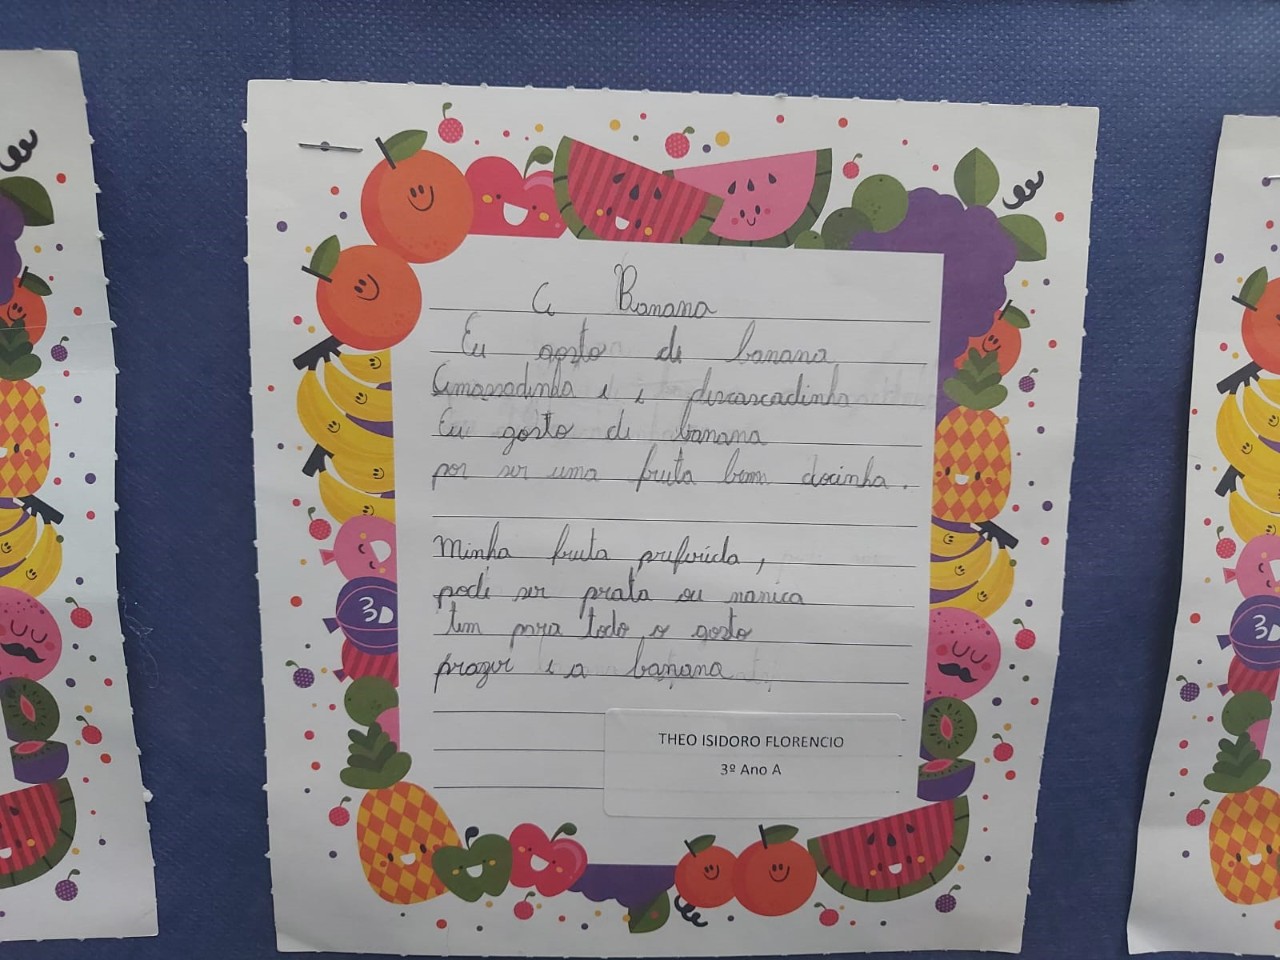 A Banana
Eu gosto de banana
Amassadinha e e descascadinha
Eu gosto de banana
por ser uma fruta bem docinha.
Minha fruta preferida,
pode ser prata ou nanica
tem para todo o gosto
prazer e a banana
THEO ISIDORO FLORENCIO
3º Ano A